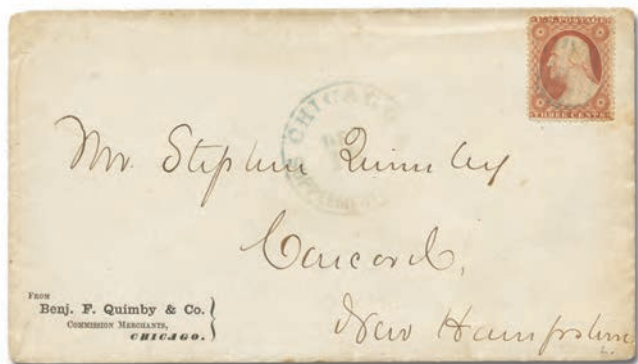 U.S. POSTAGE
THREE CENTS
CHICAGO
SUPPLEMENTARY
Mr. Stephen Quimby
Concord,
New Hampshire
FROM
Benj. F. Quimby & Co.
COMMISSION MERCHANTS,
CHICAGO.